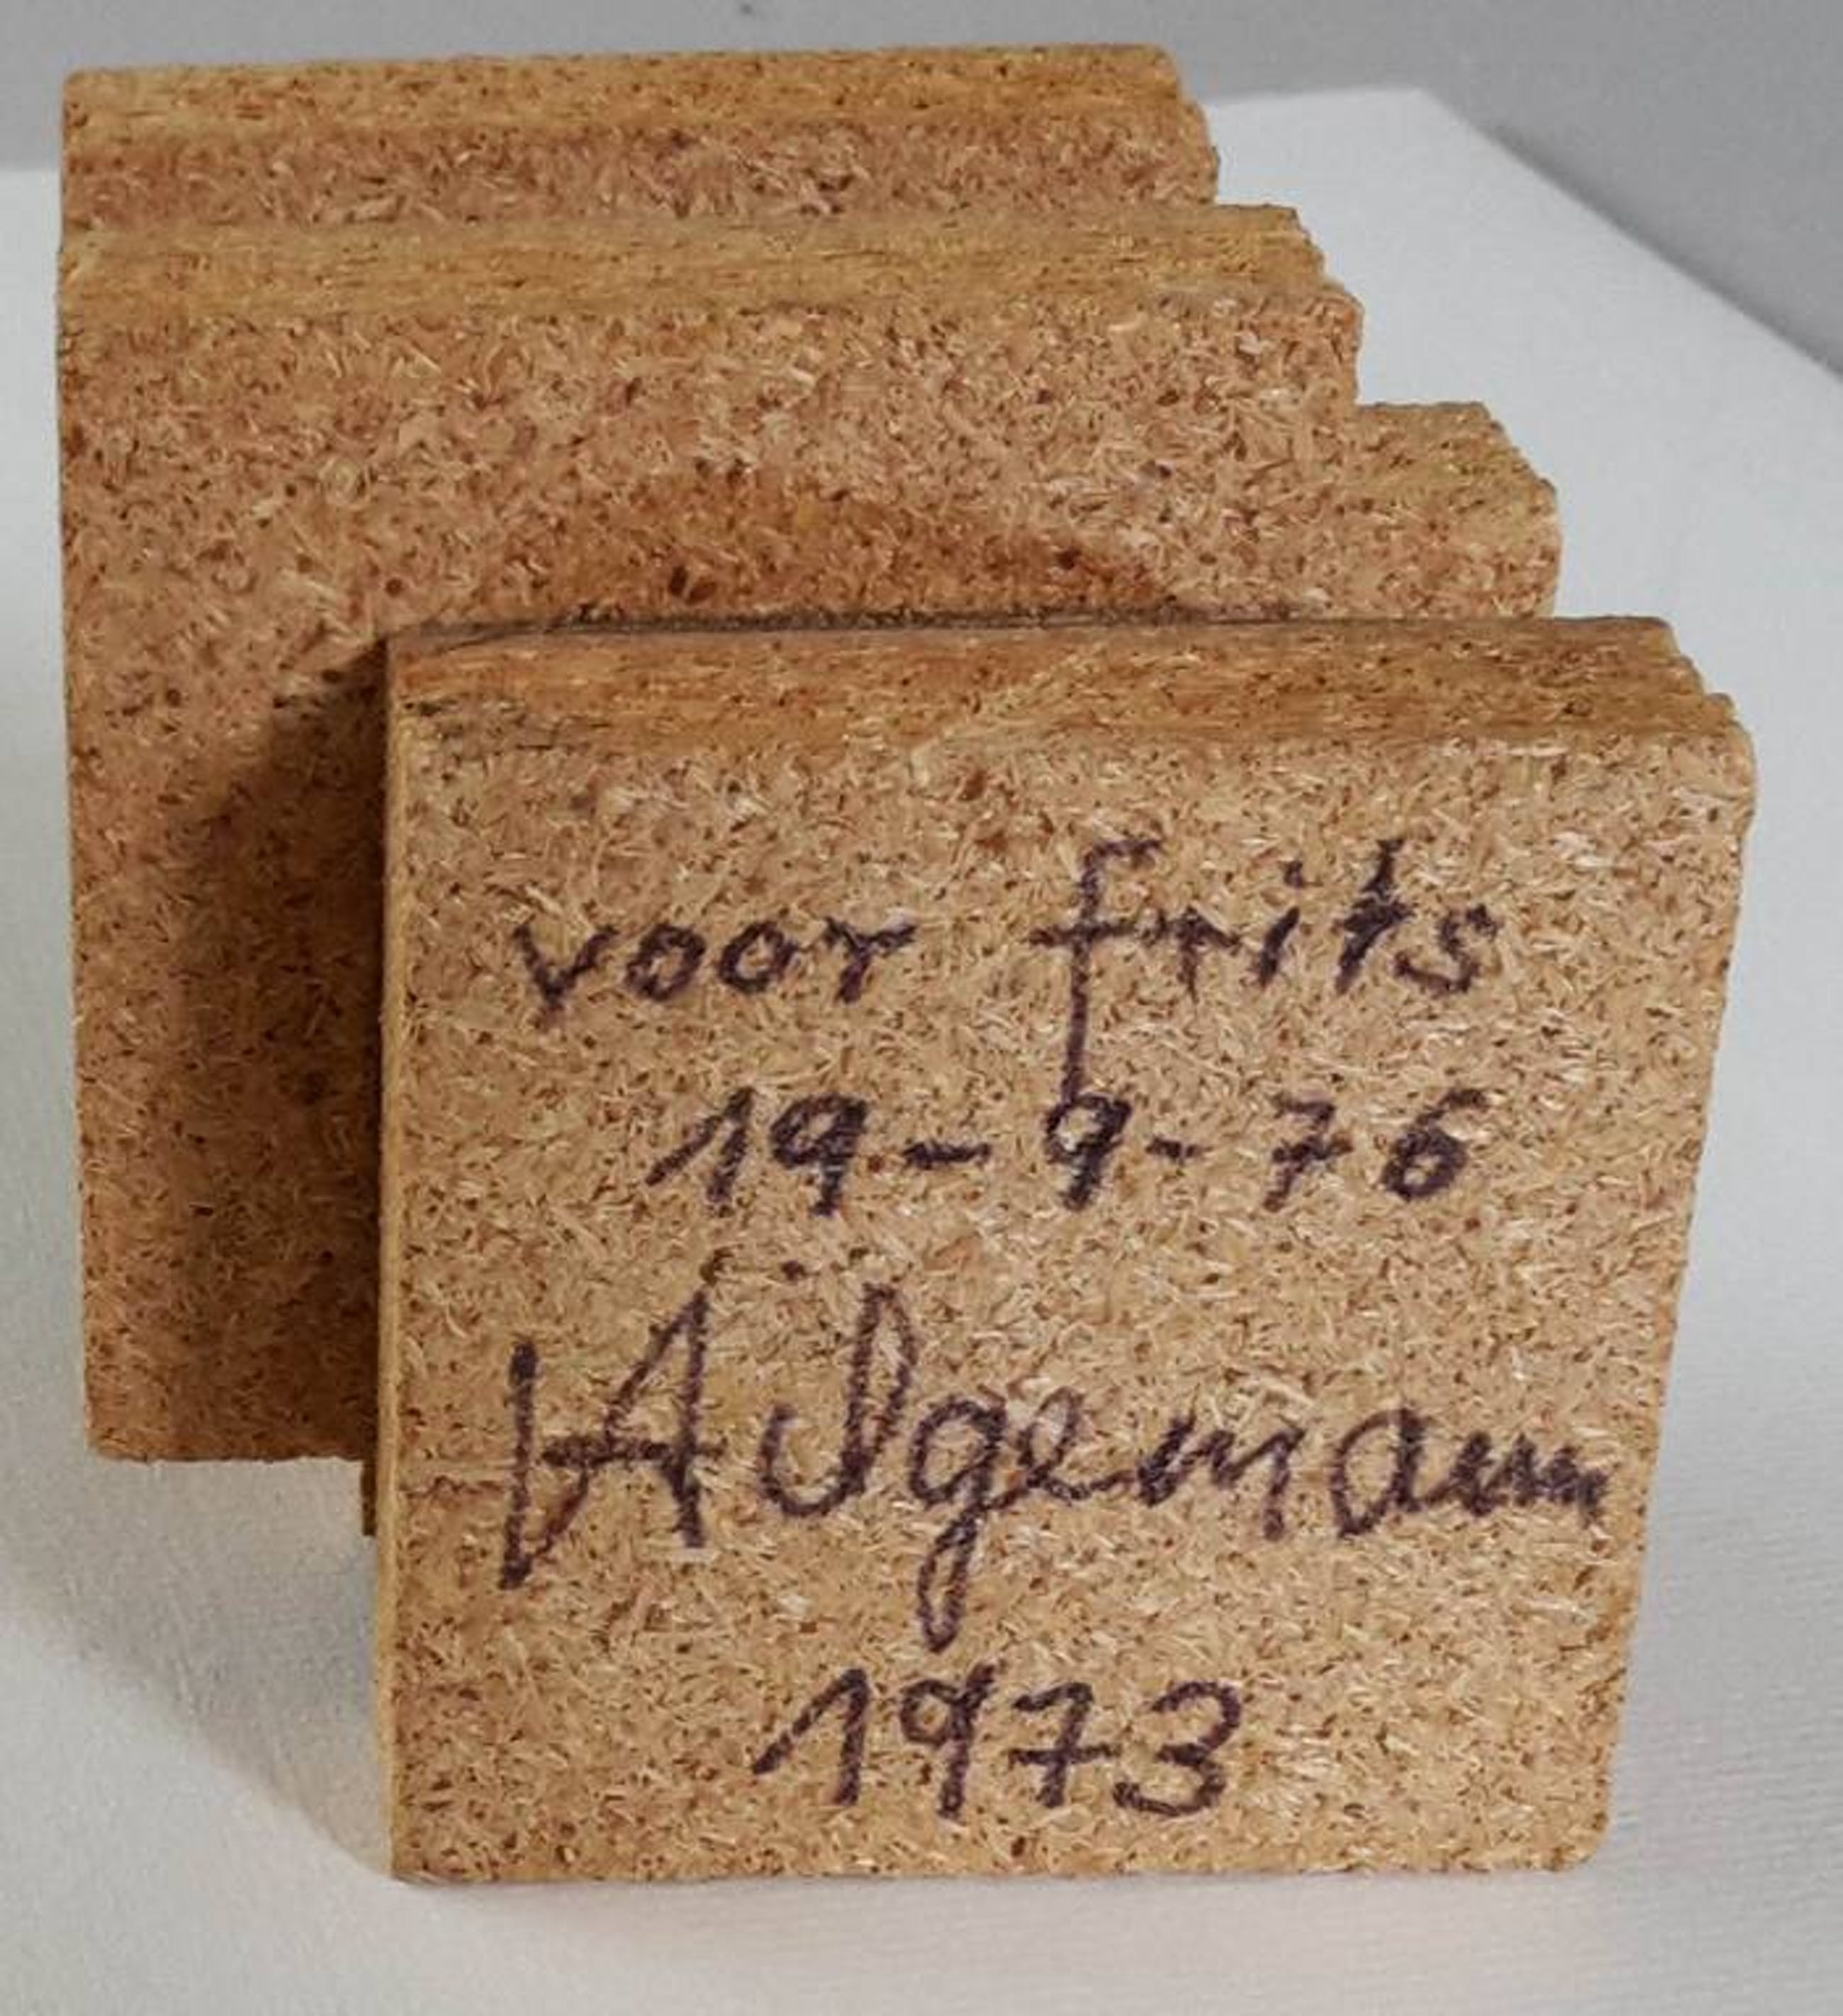 voor frits
19-9-76
Hilgemann
1973